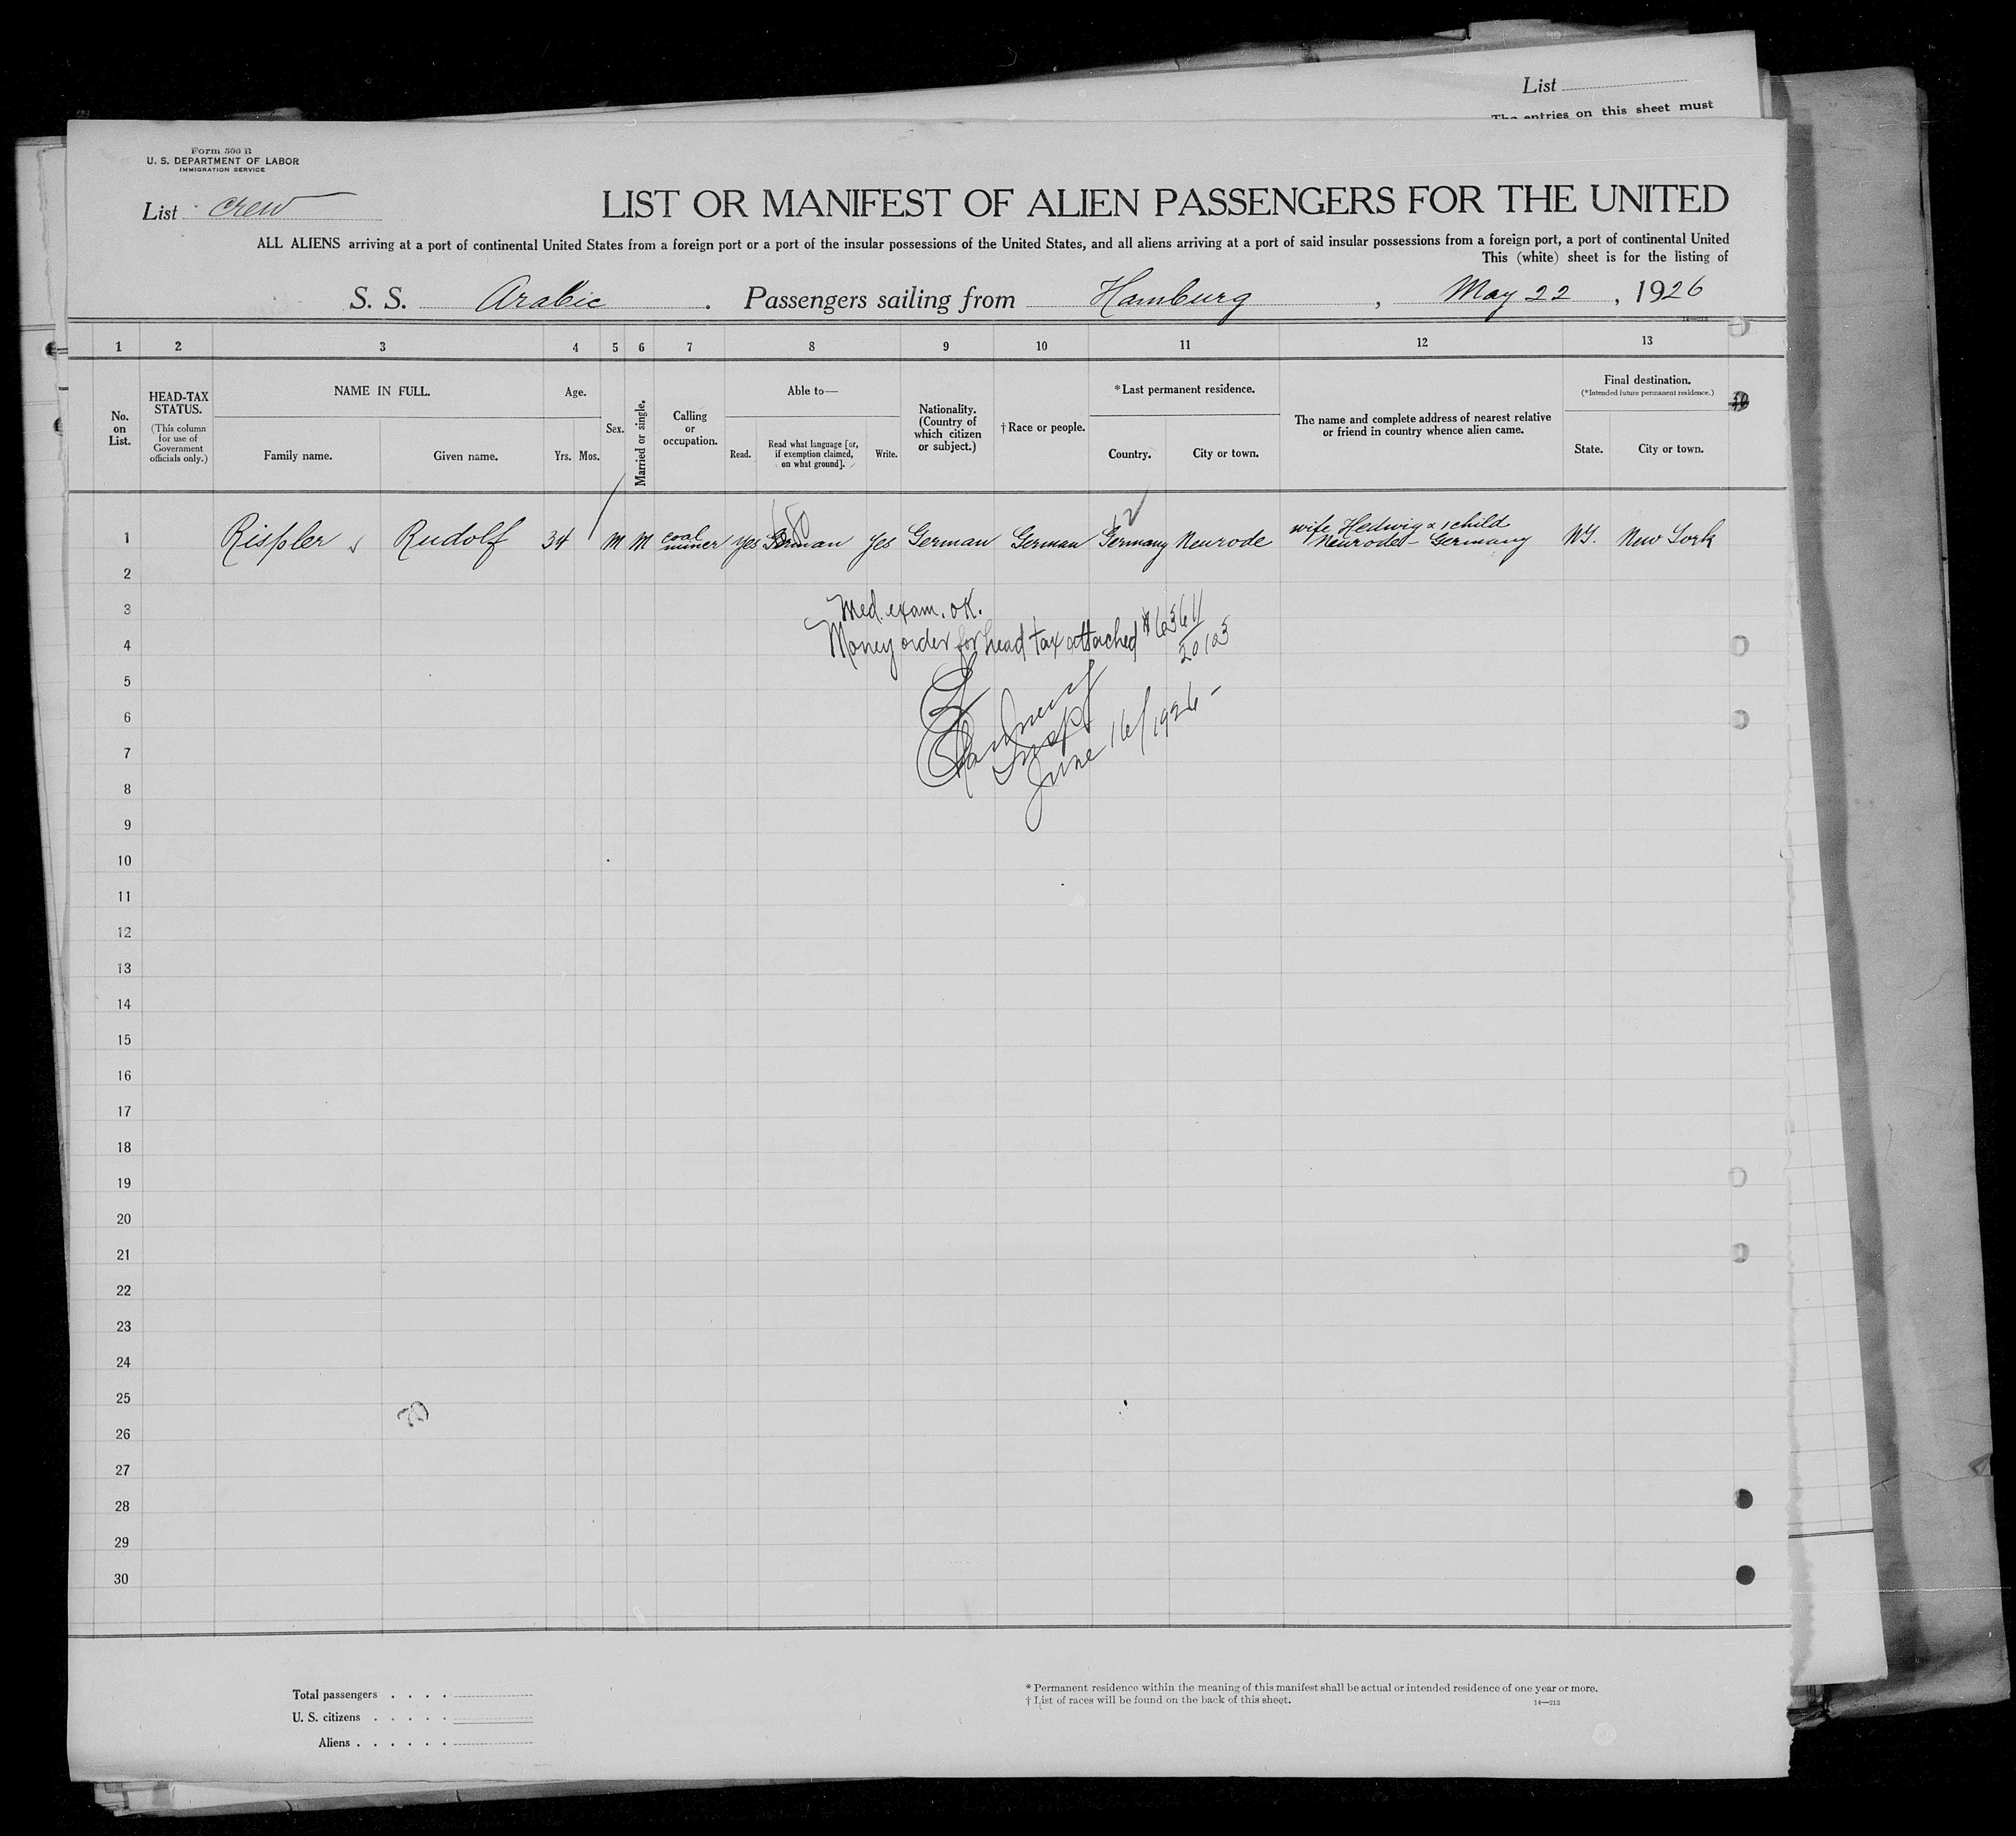 List
The entries on this sheet must
Form 500 B
U. S. DEPARTMENT OF LABOR
IMMIGRATION SERVICE
List crew
LIST OR MANIFEST OF ALIEN PASSENGERS FOR THE UNITED
ALL ALIENS arriving at a port of continental United States from a foreign port or a port of the insular possessions of the United States, and all aliens arriving at a port of said insular possessions from a foreign port, a port of continental United
This (white) sheet is for the listing of
S. S. Arabic . Passengers sailing from Hamburg , May 22 , 1926
1 2 3 4 5 6 7 8 9 10 11 12 13
No. on List.
HEAD-TAX STATUS.
(This column for use of Government officials only.)
NAME IN FULL.
Family name. Given name.
Age.
Yrs. Mos.
Sex.
Married or single.
Calling or occupation.
Able to—
Read. Read what language [or, if exemption claimed, on what ground]. Write.
Nationality. (Country of which citizen or subject.)
† Race or people.
*Last permanent residence.
Country. City or town.
The name and complete address of nearest relative or friend in country whence alien came.
Final destination.
(*Intended future permanent residence.)
State. City or town.
1 Rispler Rudolf 34 M M coal miner yes German yes German German Germany Neurode wife Hedwig & 1 child Neurode - Germany NY. New York
2
3 Med. exam. OK.
4 Money order for head tax attached
5
6
7 Insp
8 June 16/1926
9
10
11
12
13
14
15
16
17
18
19
20
21
22
23
24
25
26
27
28
29
30
Total passengers . . . .
U. S. citizens . . . . .
Aliens . . . . . .
* Permanent residence within the meaning of this manifest shall be actual or intended residence of one year or more.
† List of races will be found on the back of this sheet.
14—213